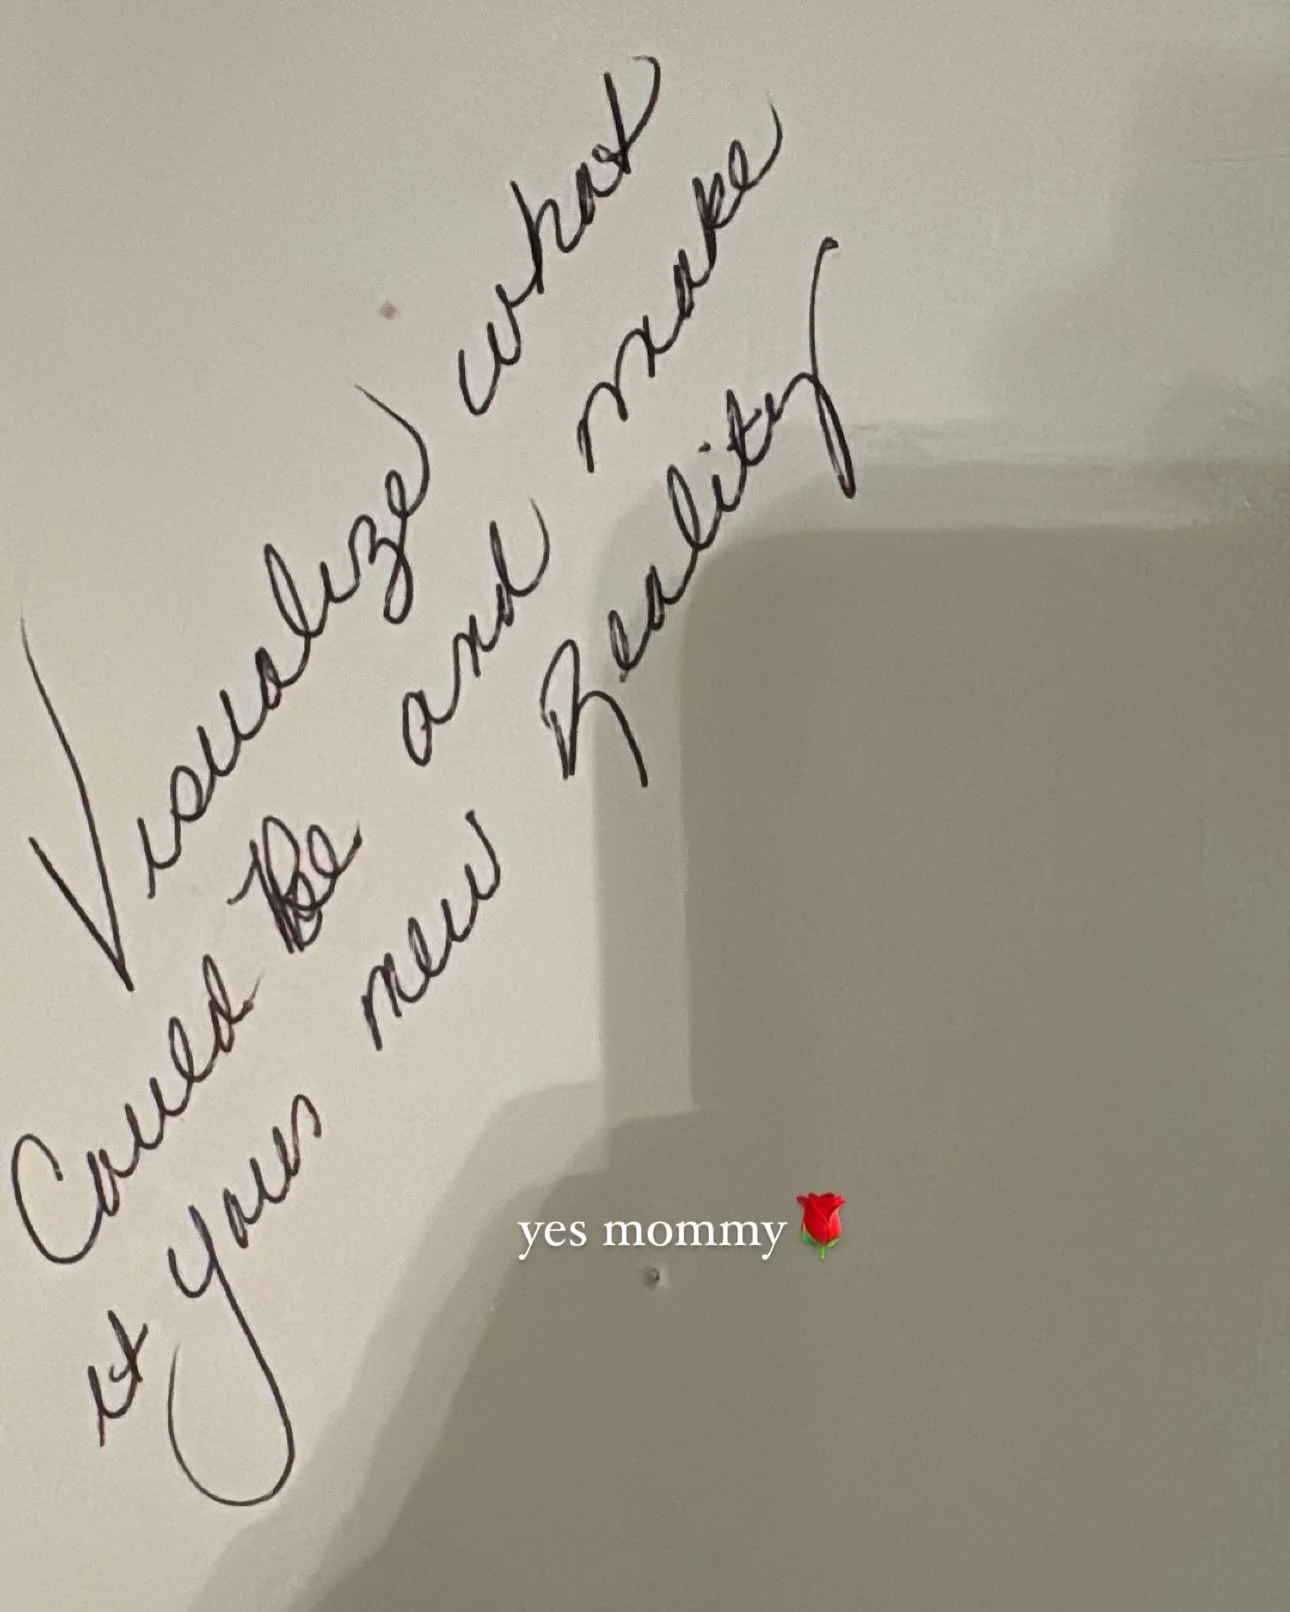 Visualize what
Could Be and make
it your new Reality
yes mommy🌹